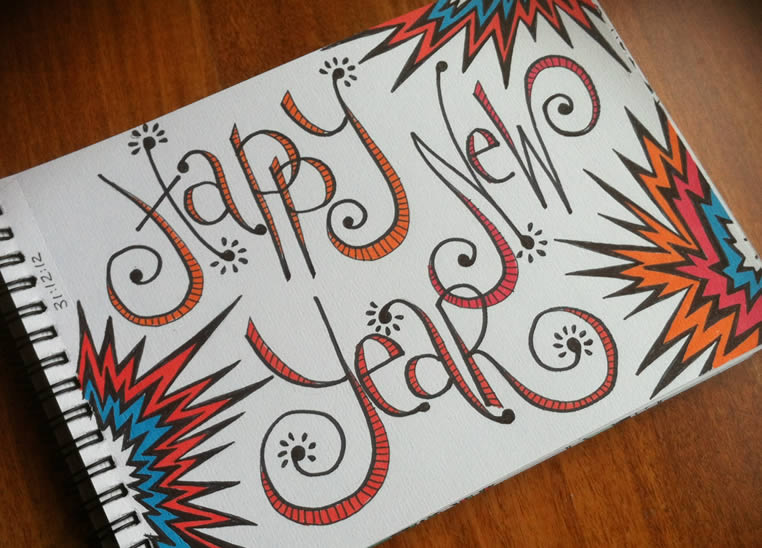 Happy New
Year
31:12:12